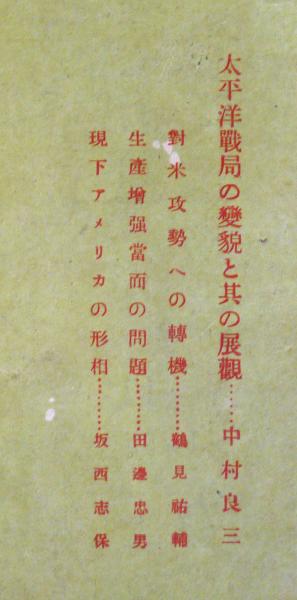 太平洋戰局の變貌と其の展觀……中村良三
對米攻勢への轉機………鶴見祐輔
生產增强當面の問題………田邊忠男
現下アメリカの形相………坂西志保